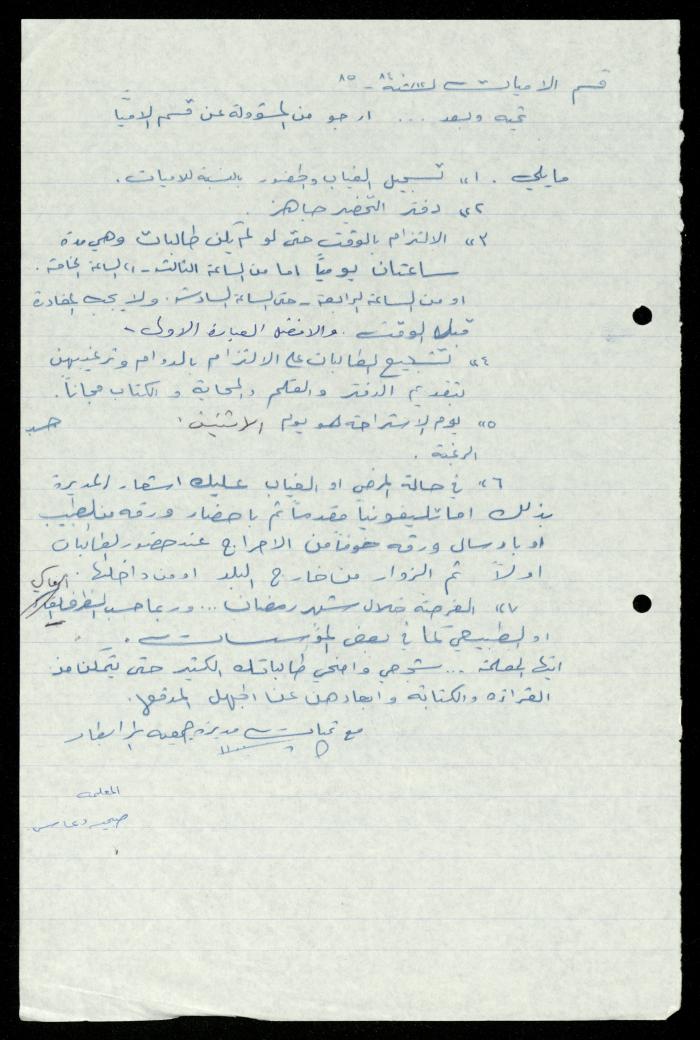 قسم الاميات لسنة ٨٤ - ٨٥
تحية وبعد ... ارجو من المسؤولة عن قسم الاميات
مايلي . ١" تسجيل الغياب والحضور بالنسبة للاميات .
٢" دفتر التحضير جاهز .
٣" الالتزام بالوقت حتى لو لم يكن طالبات وهي مدة
ساعتان يومياً اما من الساعة الثالثة - الساعة الخامسة .
او من الساعة الرابعة - حتى الساعة السادسة . ولا يجب المغادرة
قبل الوقت . والافضل العبارة الاولى -
٤" تشجيع الطالبات على الالتزام بالدوام وترغيبهن
بتقديم الدفتر والقلم والمحاية و الكتاب مجاناً .
٥" يوم الاستراحة هو يوم الاثنين . حسب
الرغبة .
٦" في حالة المرض او الغياب عليك اشعار المديرة
بذلك اما تليفونياً مقدماً ثم باحضار ورقة من الطبيب
او بارسال ورقة خوفاً من الاحراج عند حضور الطالبات
اولاً ثم الزوار من خارج البلد او من داخلها .
٧" الفرصة خلال شهر رمضان ... وربما حسب الظرف
او الطبيعي كما في بعض المؤسسات .
ايتها المعلمة ... شجعي وامنحي طالباتك الكثير حتى يتمكن من
القراءة والكتابة وابعادهن عن الجهل المدقع .
مع تحيات مديرة جمعية
المعلمة